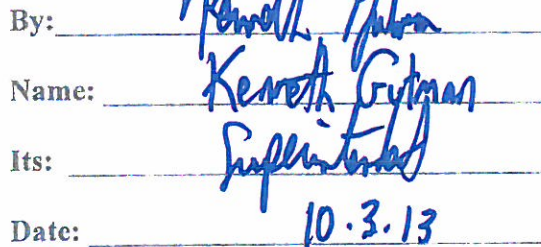 By: Kenneth Gutman
Name: Kenneth Gutman
Its: Superintendent
Date: 10.3.13